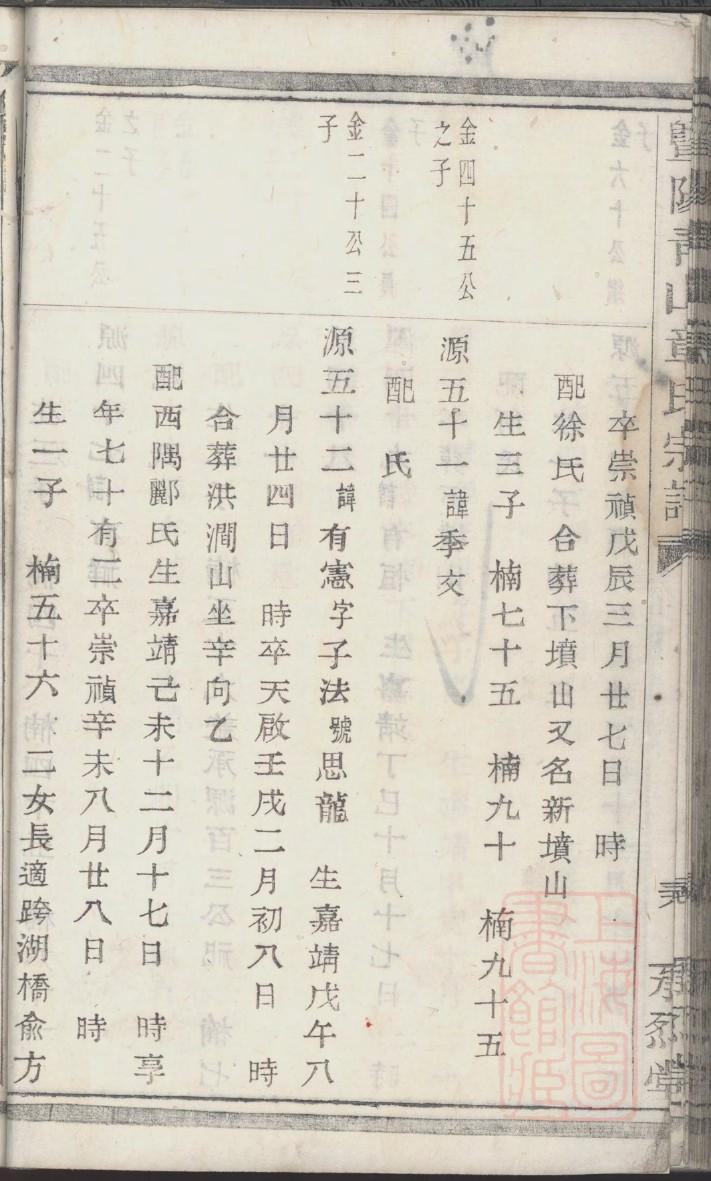 暨陽青山章氏宗譜
卒崇禎戊辰三月廿七日 時
配徐氏 合葬下墳山又名新墳山
生三子 楠七十五 楠九十 楠九十五
金四十五公
之子
源五十一諱季文
配 氏
金二十公三
子
源五十二諱有憲字子法號思龍 生嘉靖戊午八
月廿四日 時卒天啟壬戌二月初八日 時
合葬洪澗山坐辛向乙
配西隅酈氏生嘉靖己未十二月十七日 時享
年七十有三卒崇禎辛未八月廿八日 時
生一子 楠五十六 二女長適跨湖橋俞方
上海圖書館藏